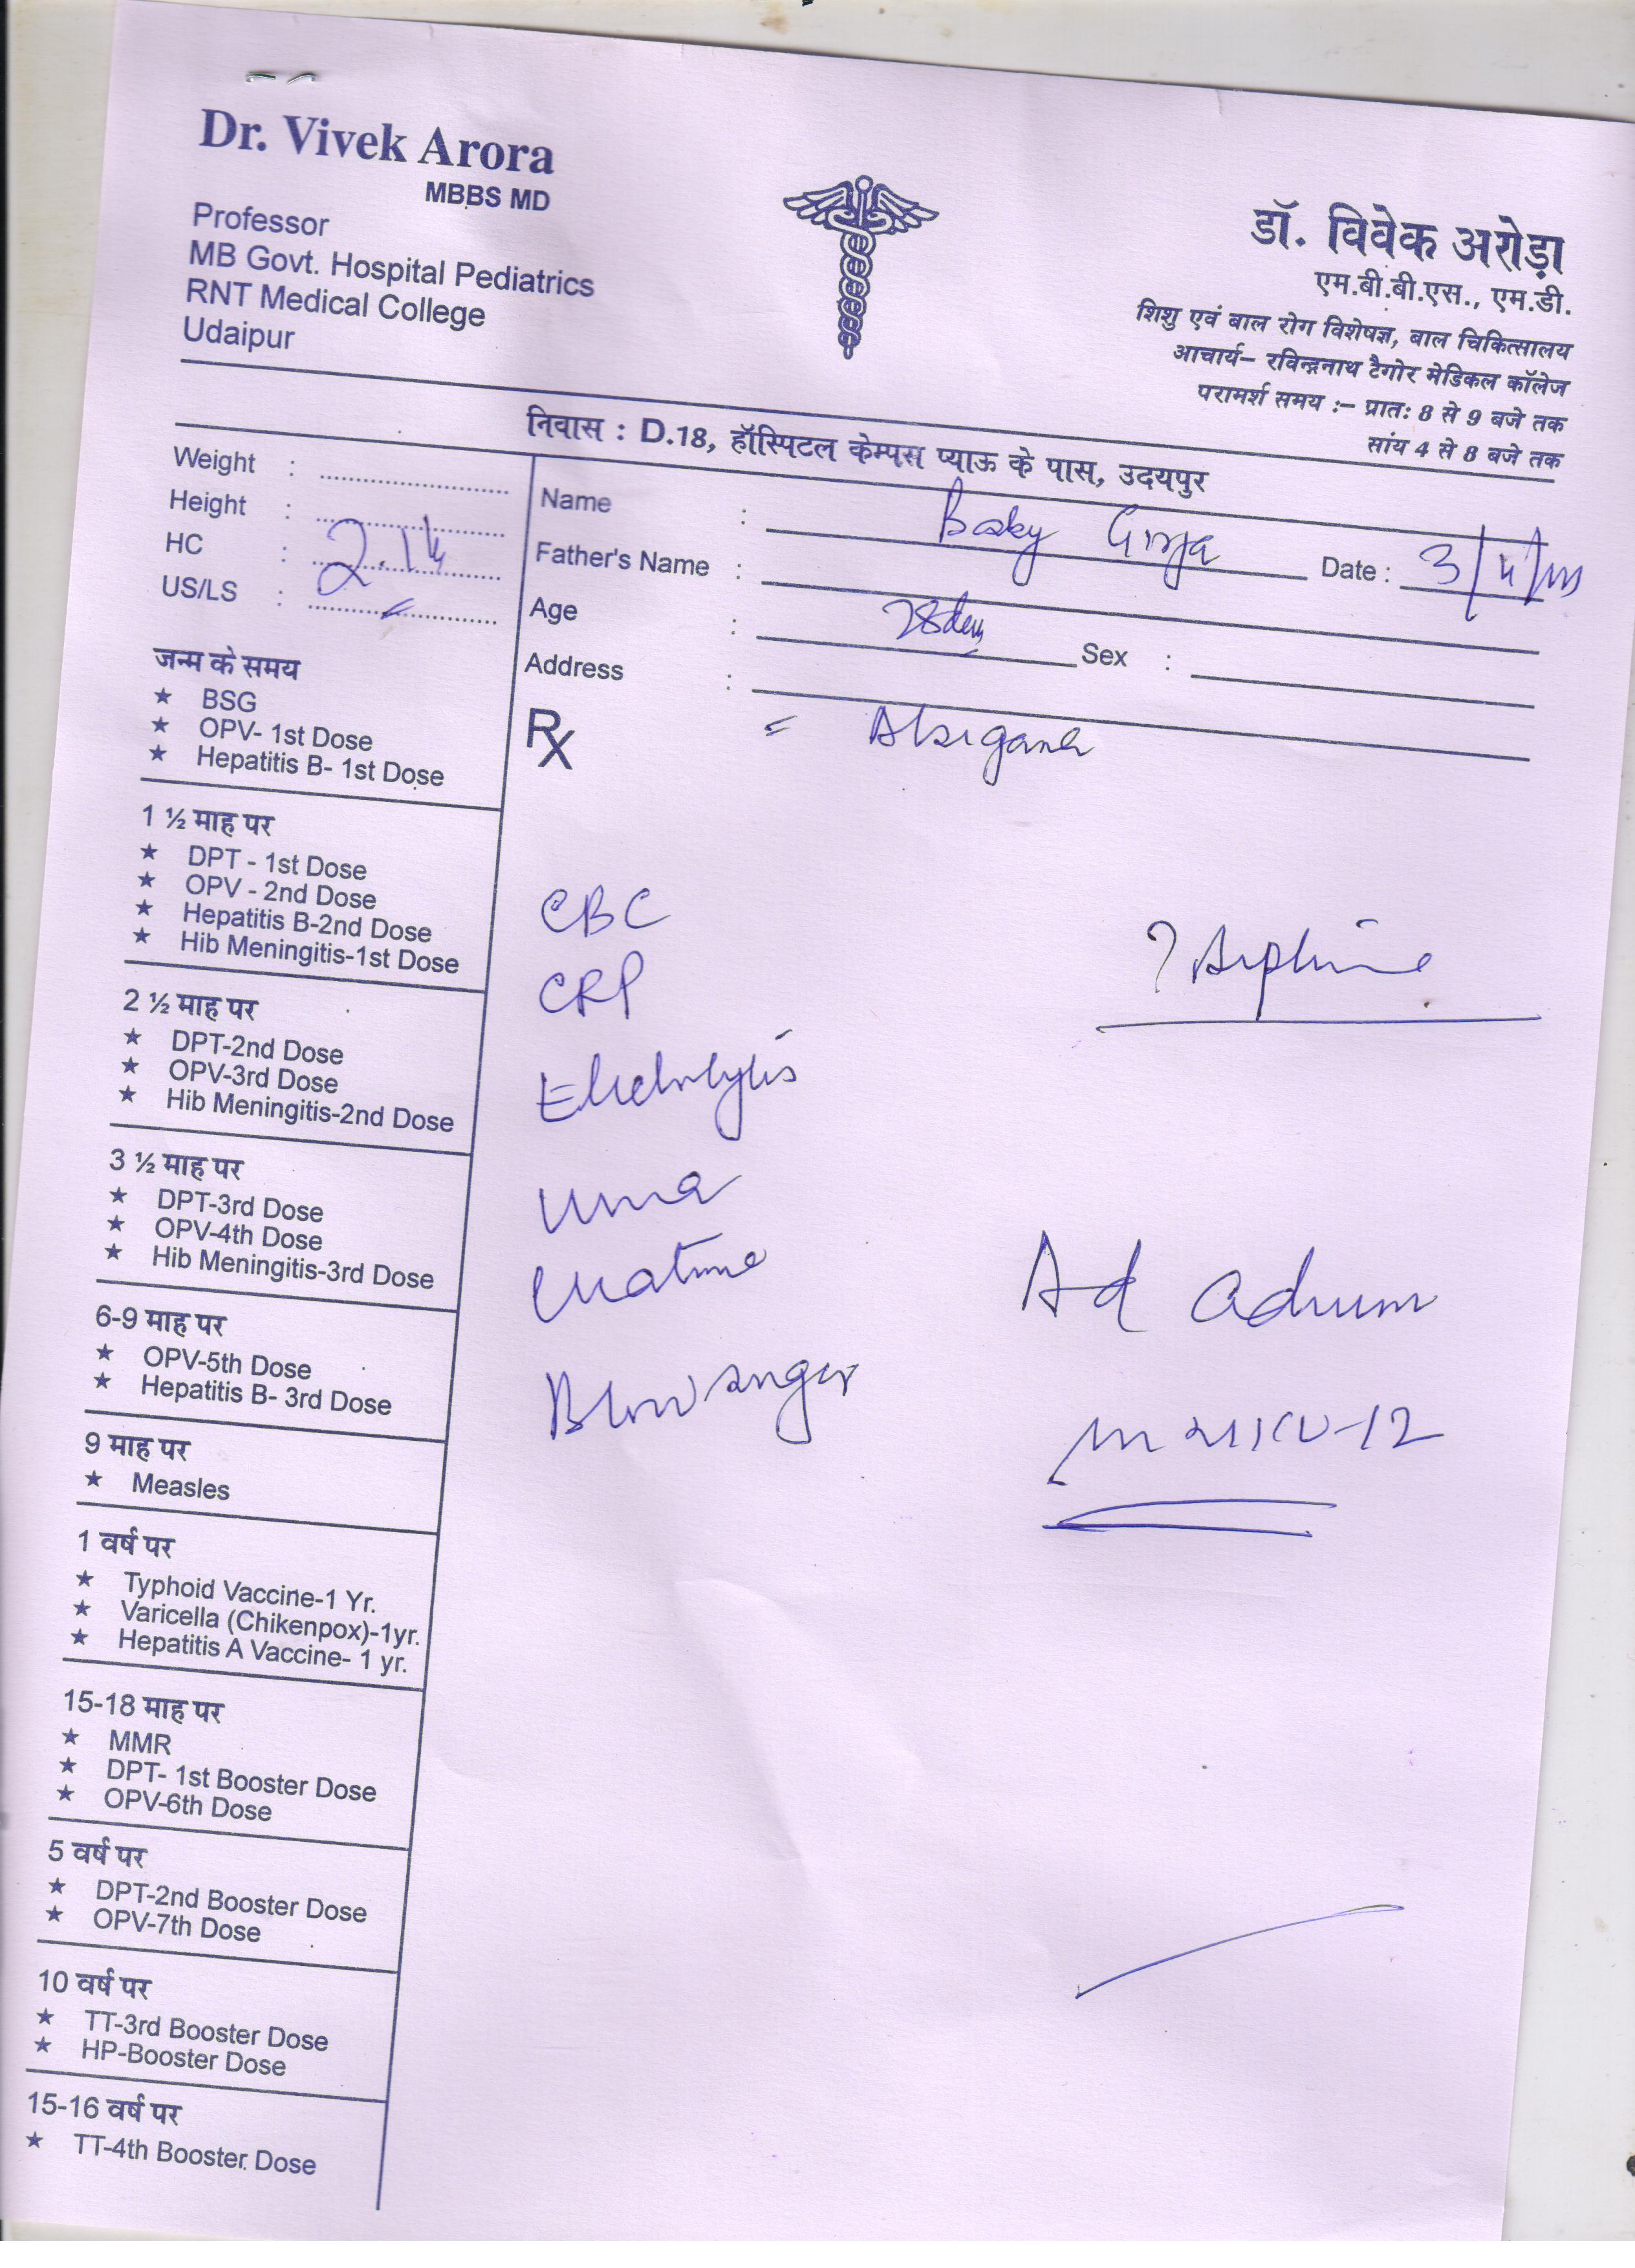 Dr. Vivek Arora
MBBS MD
Professor
MB Govt. Hospital Pediatrics
RNT Medical College
Udaipur
डॉ. विवेक अरोड़ा
एम.बी.बी.एस., एम.डी.
शिशु एवं बाल रोग विशेषज्ञ, बाल चिकित्सालय
आचार्य– रविन्द्रनाथ टैगोर मेडिकल कॉलेज
परामर्श समय :– प्रातः 8 से 9 बजे तक
सांय 4 से 8 बजे तक
निवास : D.18, हॉस्पिटल केम्पस प्याऊ के पास, उदयपुर
Weight :
Height :
HC : 2.1
US/LS :
Name : Girja
Date : 3/4/
Father's Name :
Age : 28 days
Sex :
Address :
Rx
जन्म के समय
★ BSG
★ OPV- 1st Dose
★ Hepatitis B- 1st Dose
1 ½ माह पर
★ DPT - 1st Dose
★ OPV - 2nd Dose
★ Hepatitis B-2nd Dose
★ Hib Meningitis-1st Dose
2 ½ माह पर
★ DPT-2nd Dose
★ OPV-3rd Dose
★ Hib Meningitis-2nd Dose
3 ½ माह पर
★ DPT-3rd Dose
★ OPV-4th Dose
★ Hib Meningitis-3rd Dose
6-9 माह पर
★ OPV-5th Dose
★ Hepatitis B- 3rd Dose
9 माह पर
★ Measles
1 वर्ष पर
★ Typhoid Vaccine-1 Yr.
★ Varicella (Chikenpox)-1yr.
★ Hepatitis A Vaccine- 1 yr.
15-18 माह पर
★ MMR
★ DPT- 1st Booster Dose
★ OPV-6th Dose
5 वर्ष पर
★ DPT-2nd Booster Dose
★ OPV-7th Dose
10 वर्ष पर
★ TT-3rd Booster Dose
★ HP-Booster Dose
15-16 वर्ष पर
★ TT-4th Booster Dose
CBC
CRP
Electrolytes
Urea
Creatinine
Blood sugar